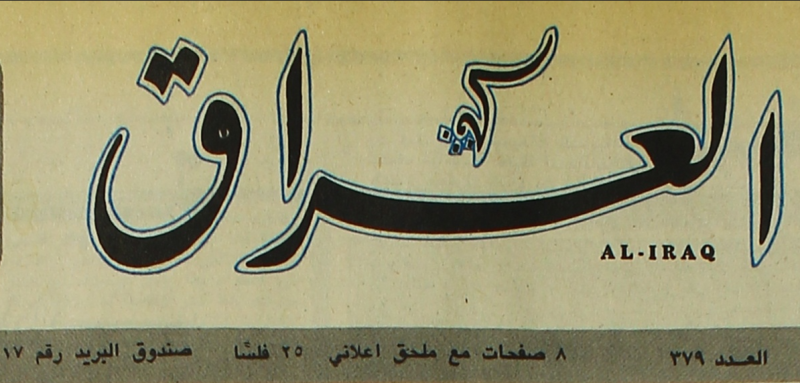 العراق
AL-IRAQ
العدد ٣٧٩ ٨ صفحات مع ملحق اعلاني ٢٥ فلسًا صندوق البريد رقم ١٧